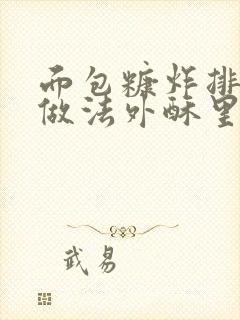 而包糠炸排
做法外酥里
武易